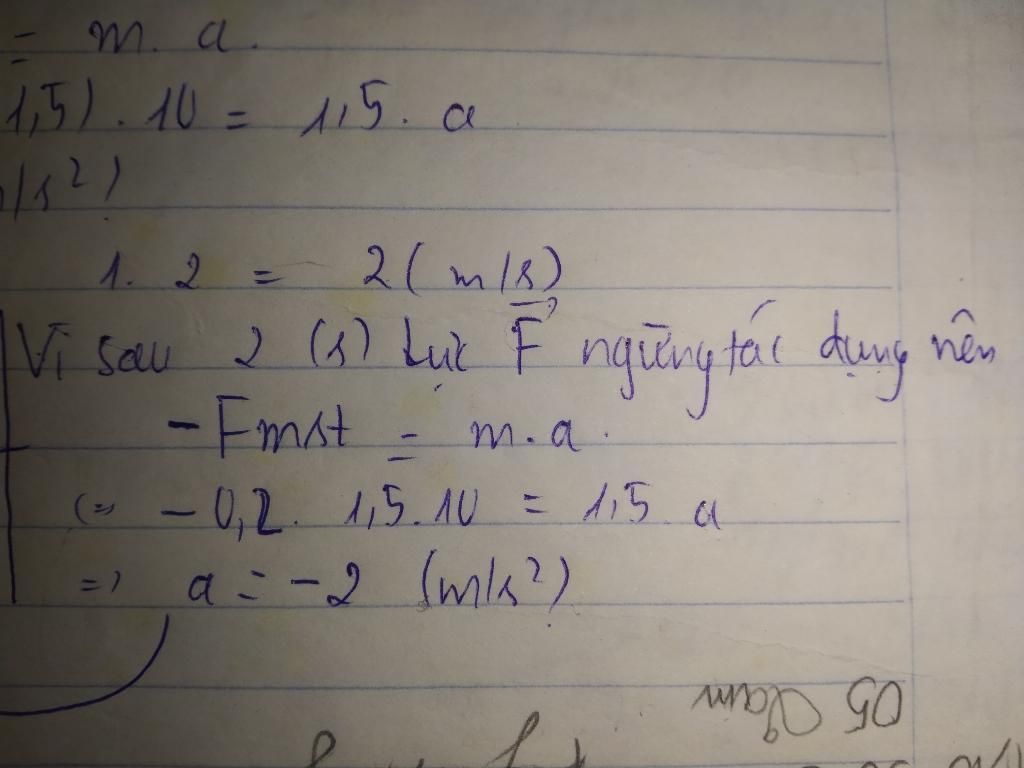 = m. a.
1,5) . 10 = 1,5. a
/s²)
1. 2 = 2 (m/s)
Vì sau 2 (s) lực F⃗ ngừng tác dụng nên
- Fmst = m.a.
(= - 0,2. 1,5.10 = 1,5 a
=> a = -2 (m/s²)
05 Lam